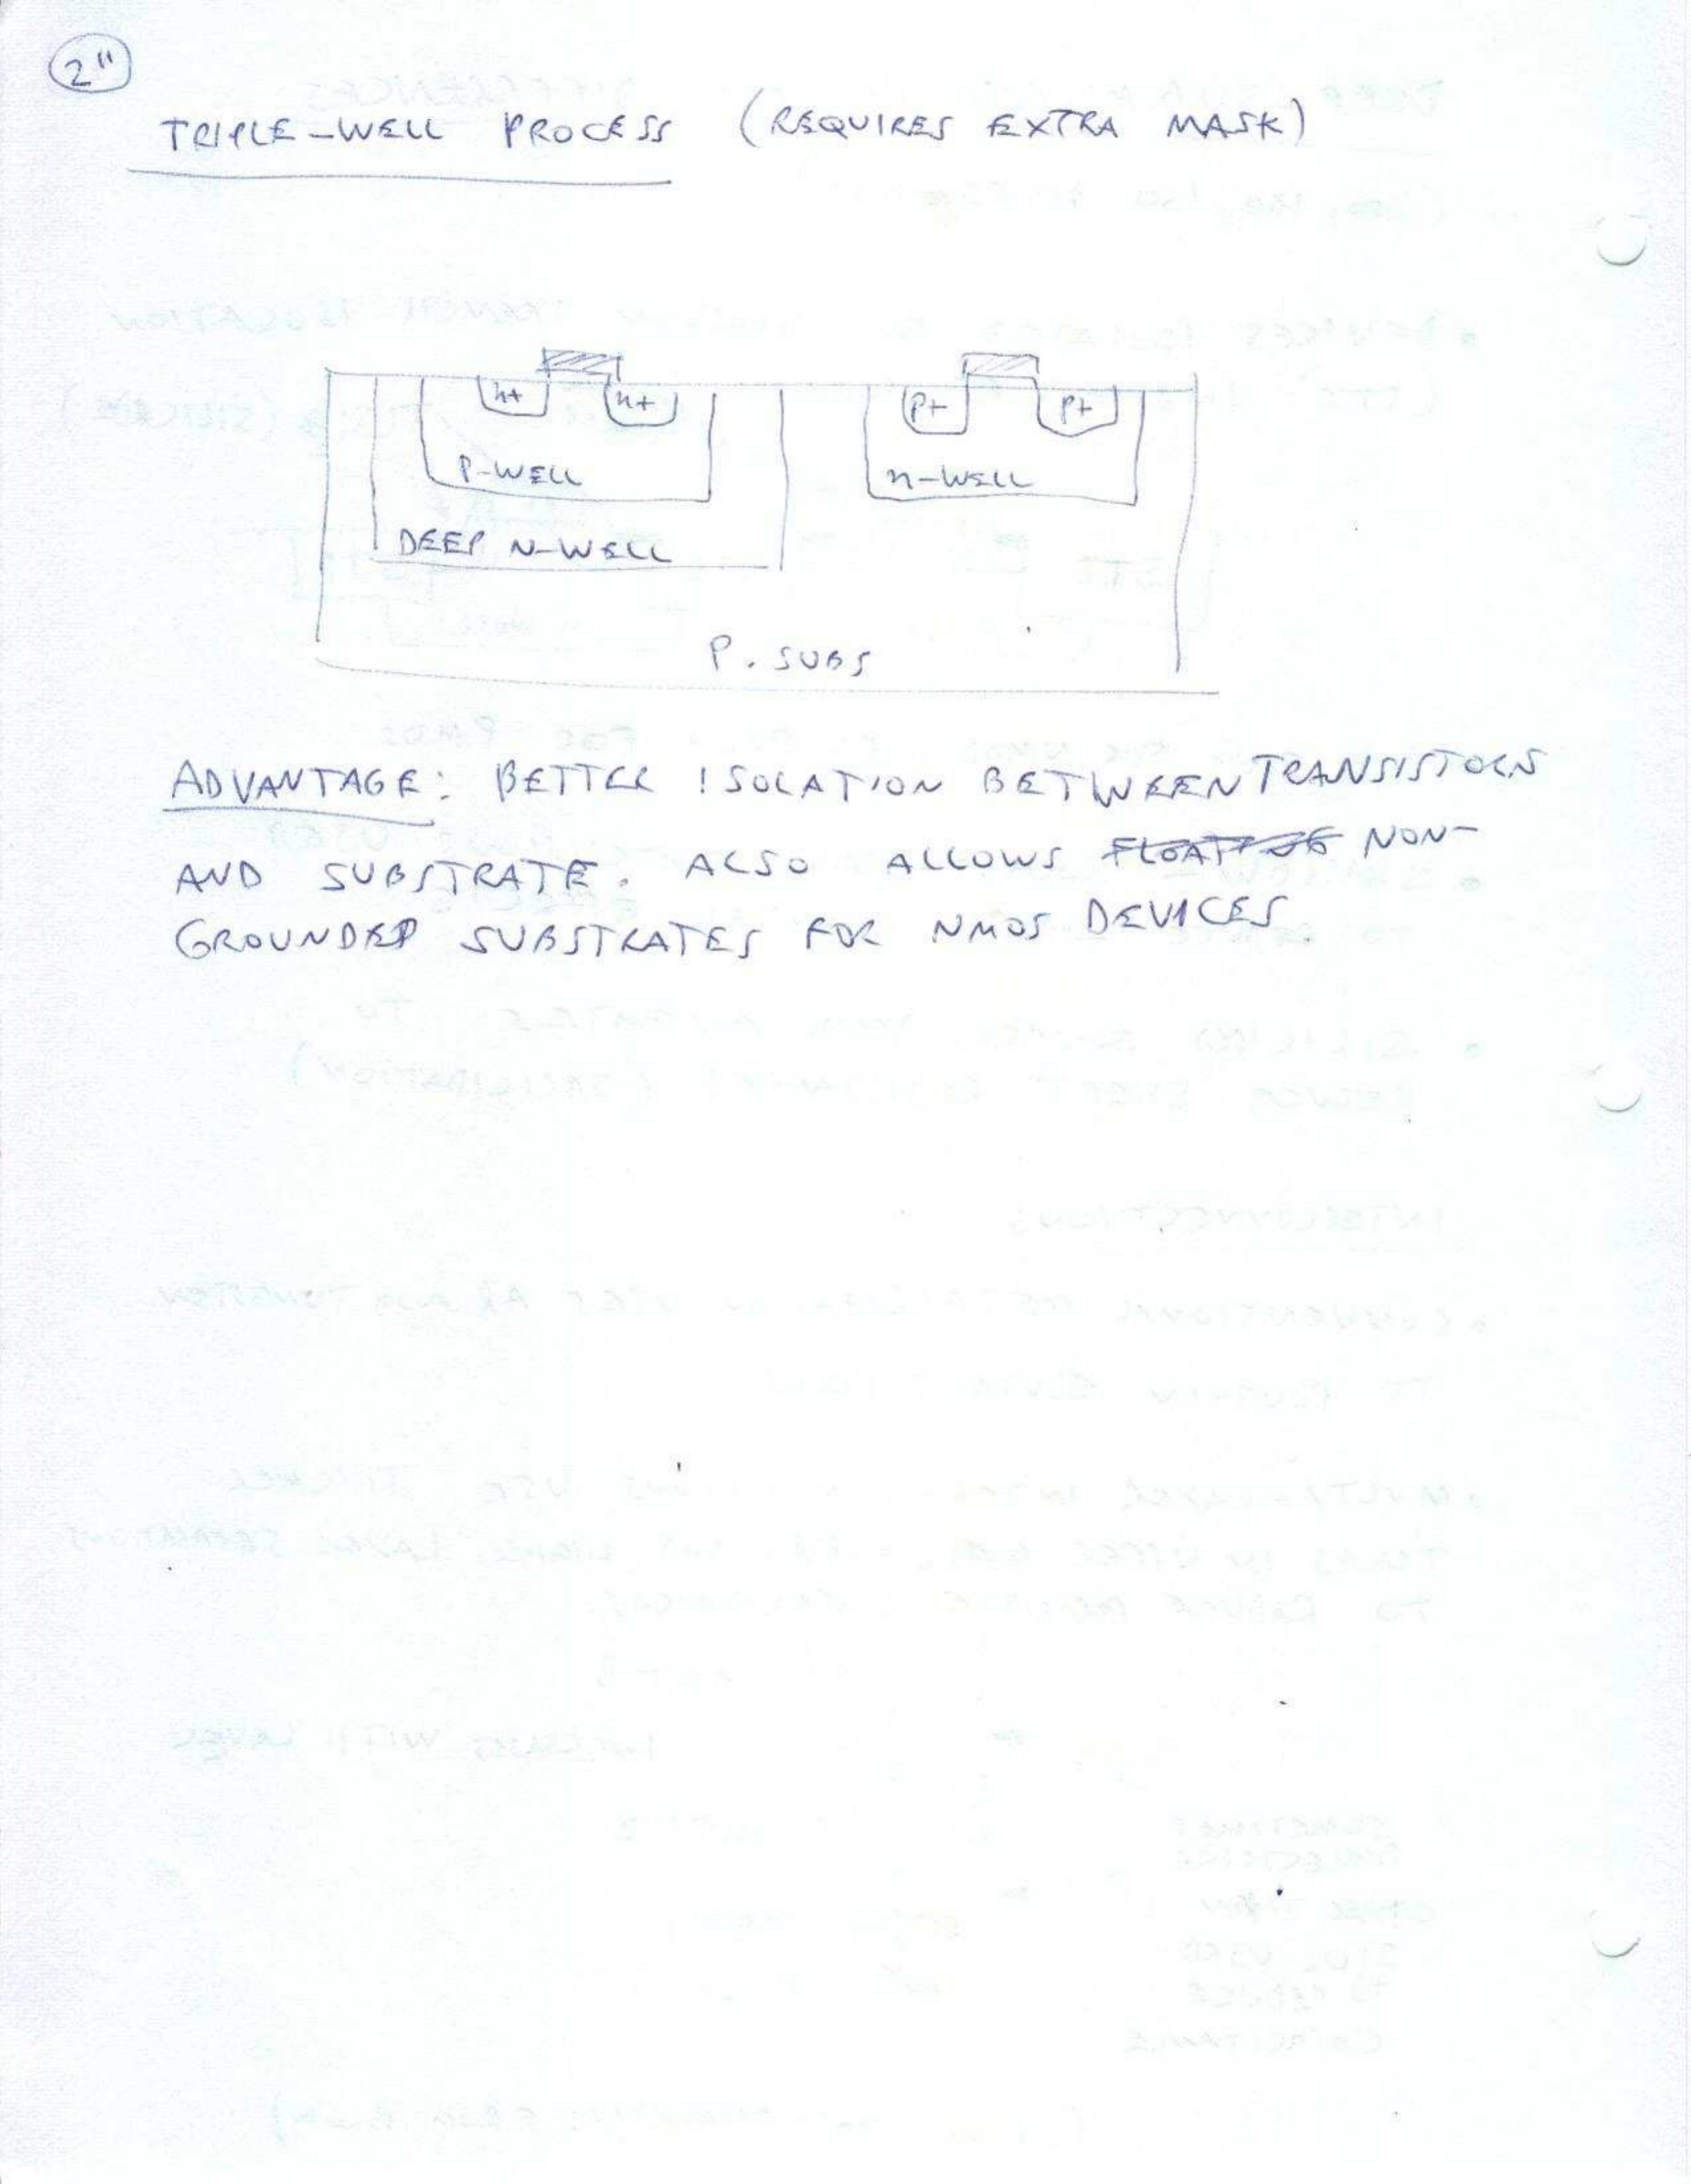 2"
TRIPLE-WELL PROCESS (REQUIRES EXTRA MASK)
n+ n+ p+ p+
P-WELL n-WELL
DEEP N-WELL
P. SUBS
ADVANTAGE: BETTER ISOLATION BETWEEN TRANSISTORS
AND SUBSTRATE. ALSO ALLOWS NON-
GROUNDED SUBSTRATES FOR NMOS DEVICES.